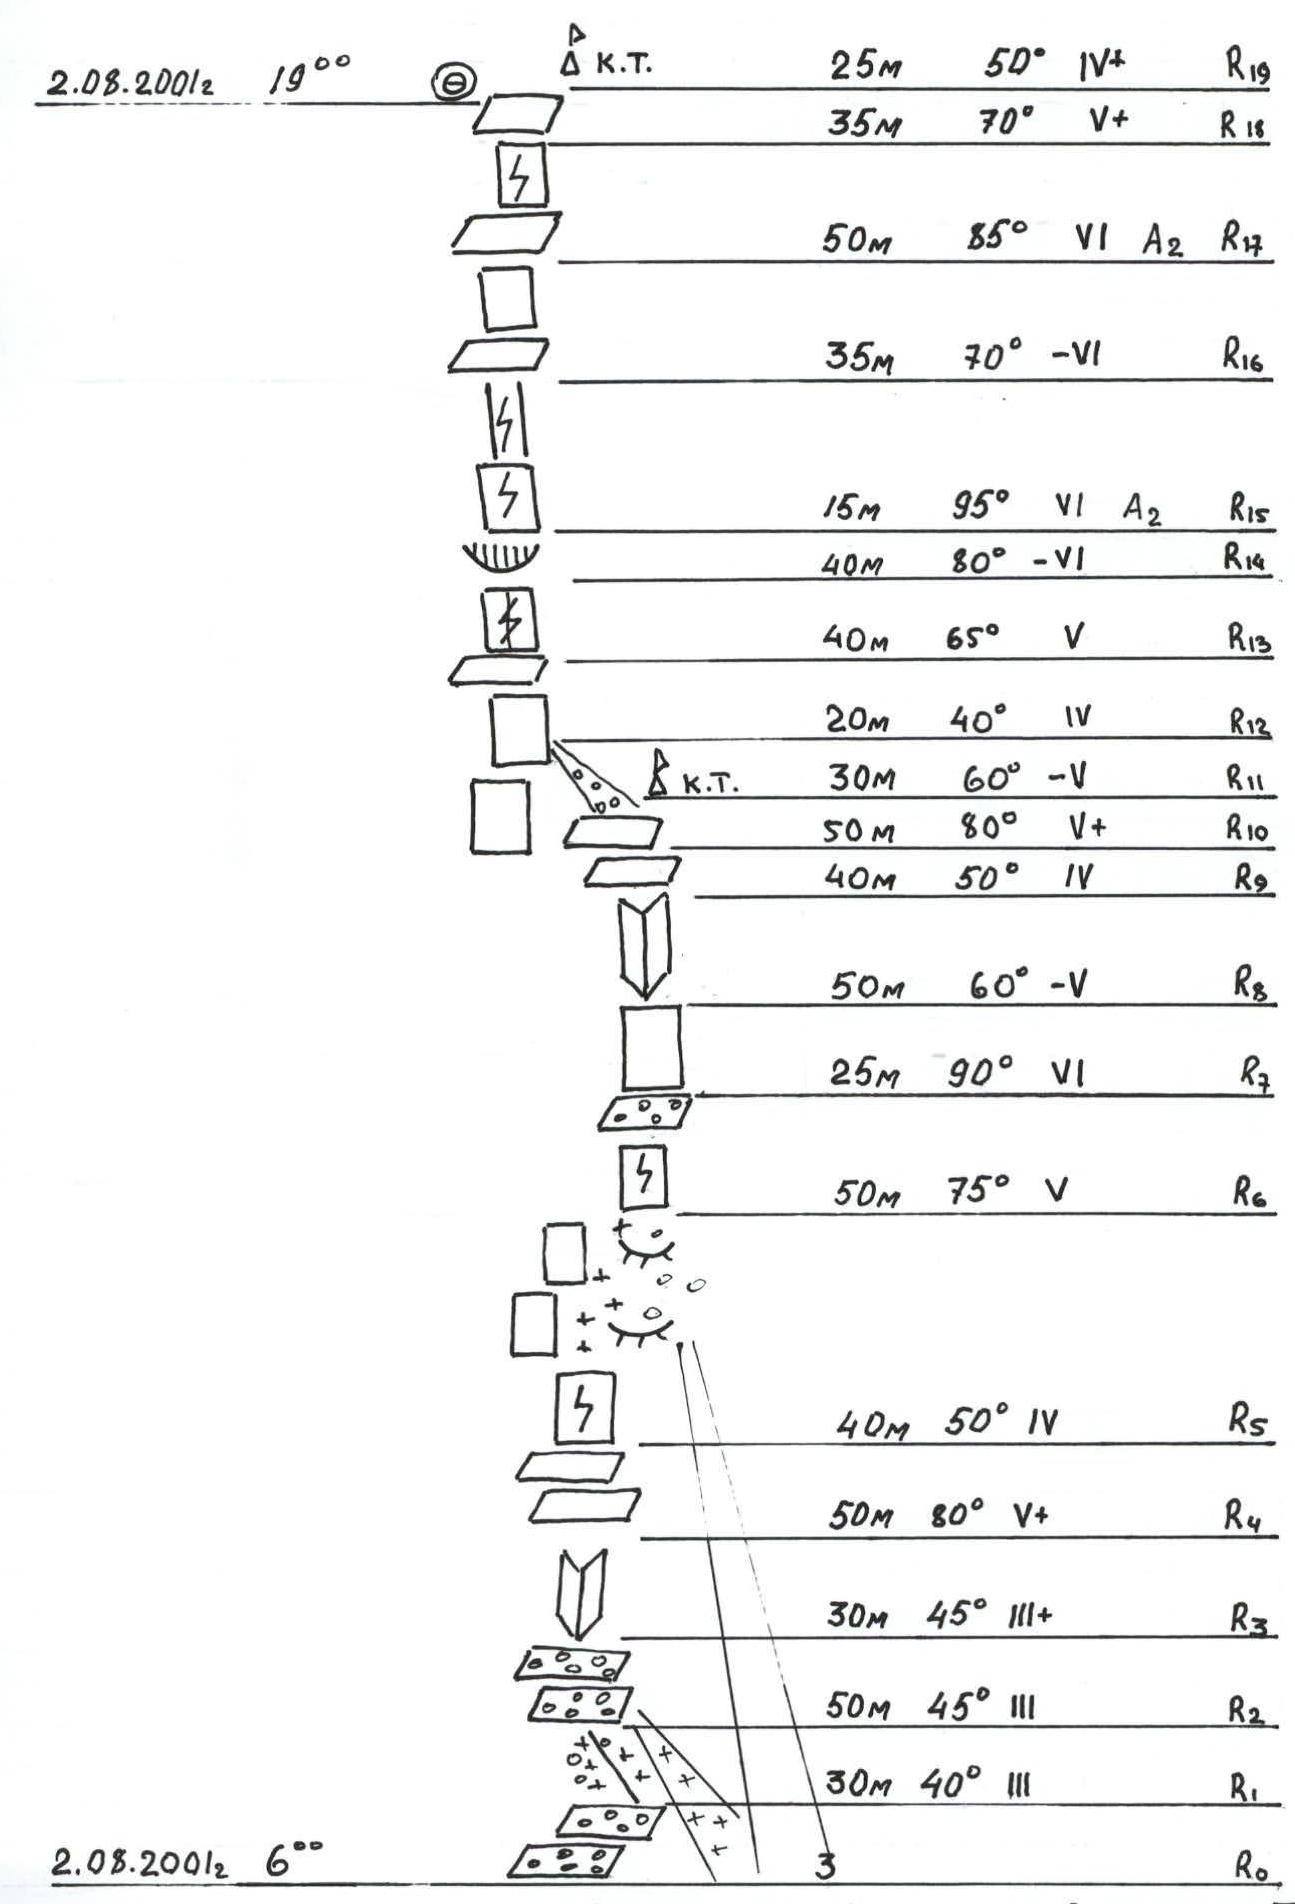 2.08.2001г 19⁰⁰ К.Т. 25м 50° IV+ R19
35м 70° V+ R18
50м 85° VI A2 R17
35м 70° -VI R16
15м 95° VI A2 R15
40м 80° -VI R14
40м 65° V R13
20м 40° IV R12
К.Т. 30м 60° -V R11
50м 80° V+ R10
40м 50° IV R9
50м 60° -V R8
25м 90° VI R7
50м 75° V R6
40м 50° IV R5
50м 80° V+ R4
30м 45° III+ R3
50м 45° III R2
30м 40° III R1
2.08.2001г 6⁰⁰ 3 R0